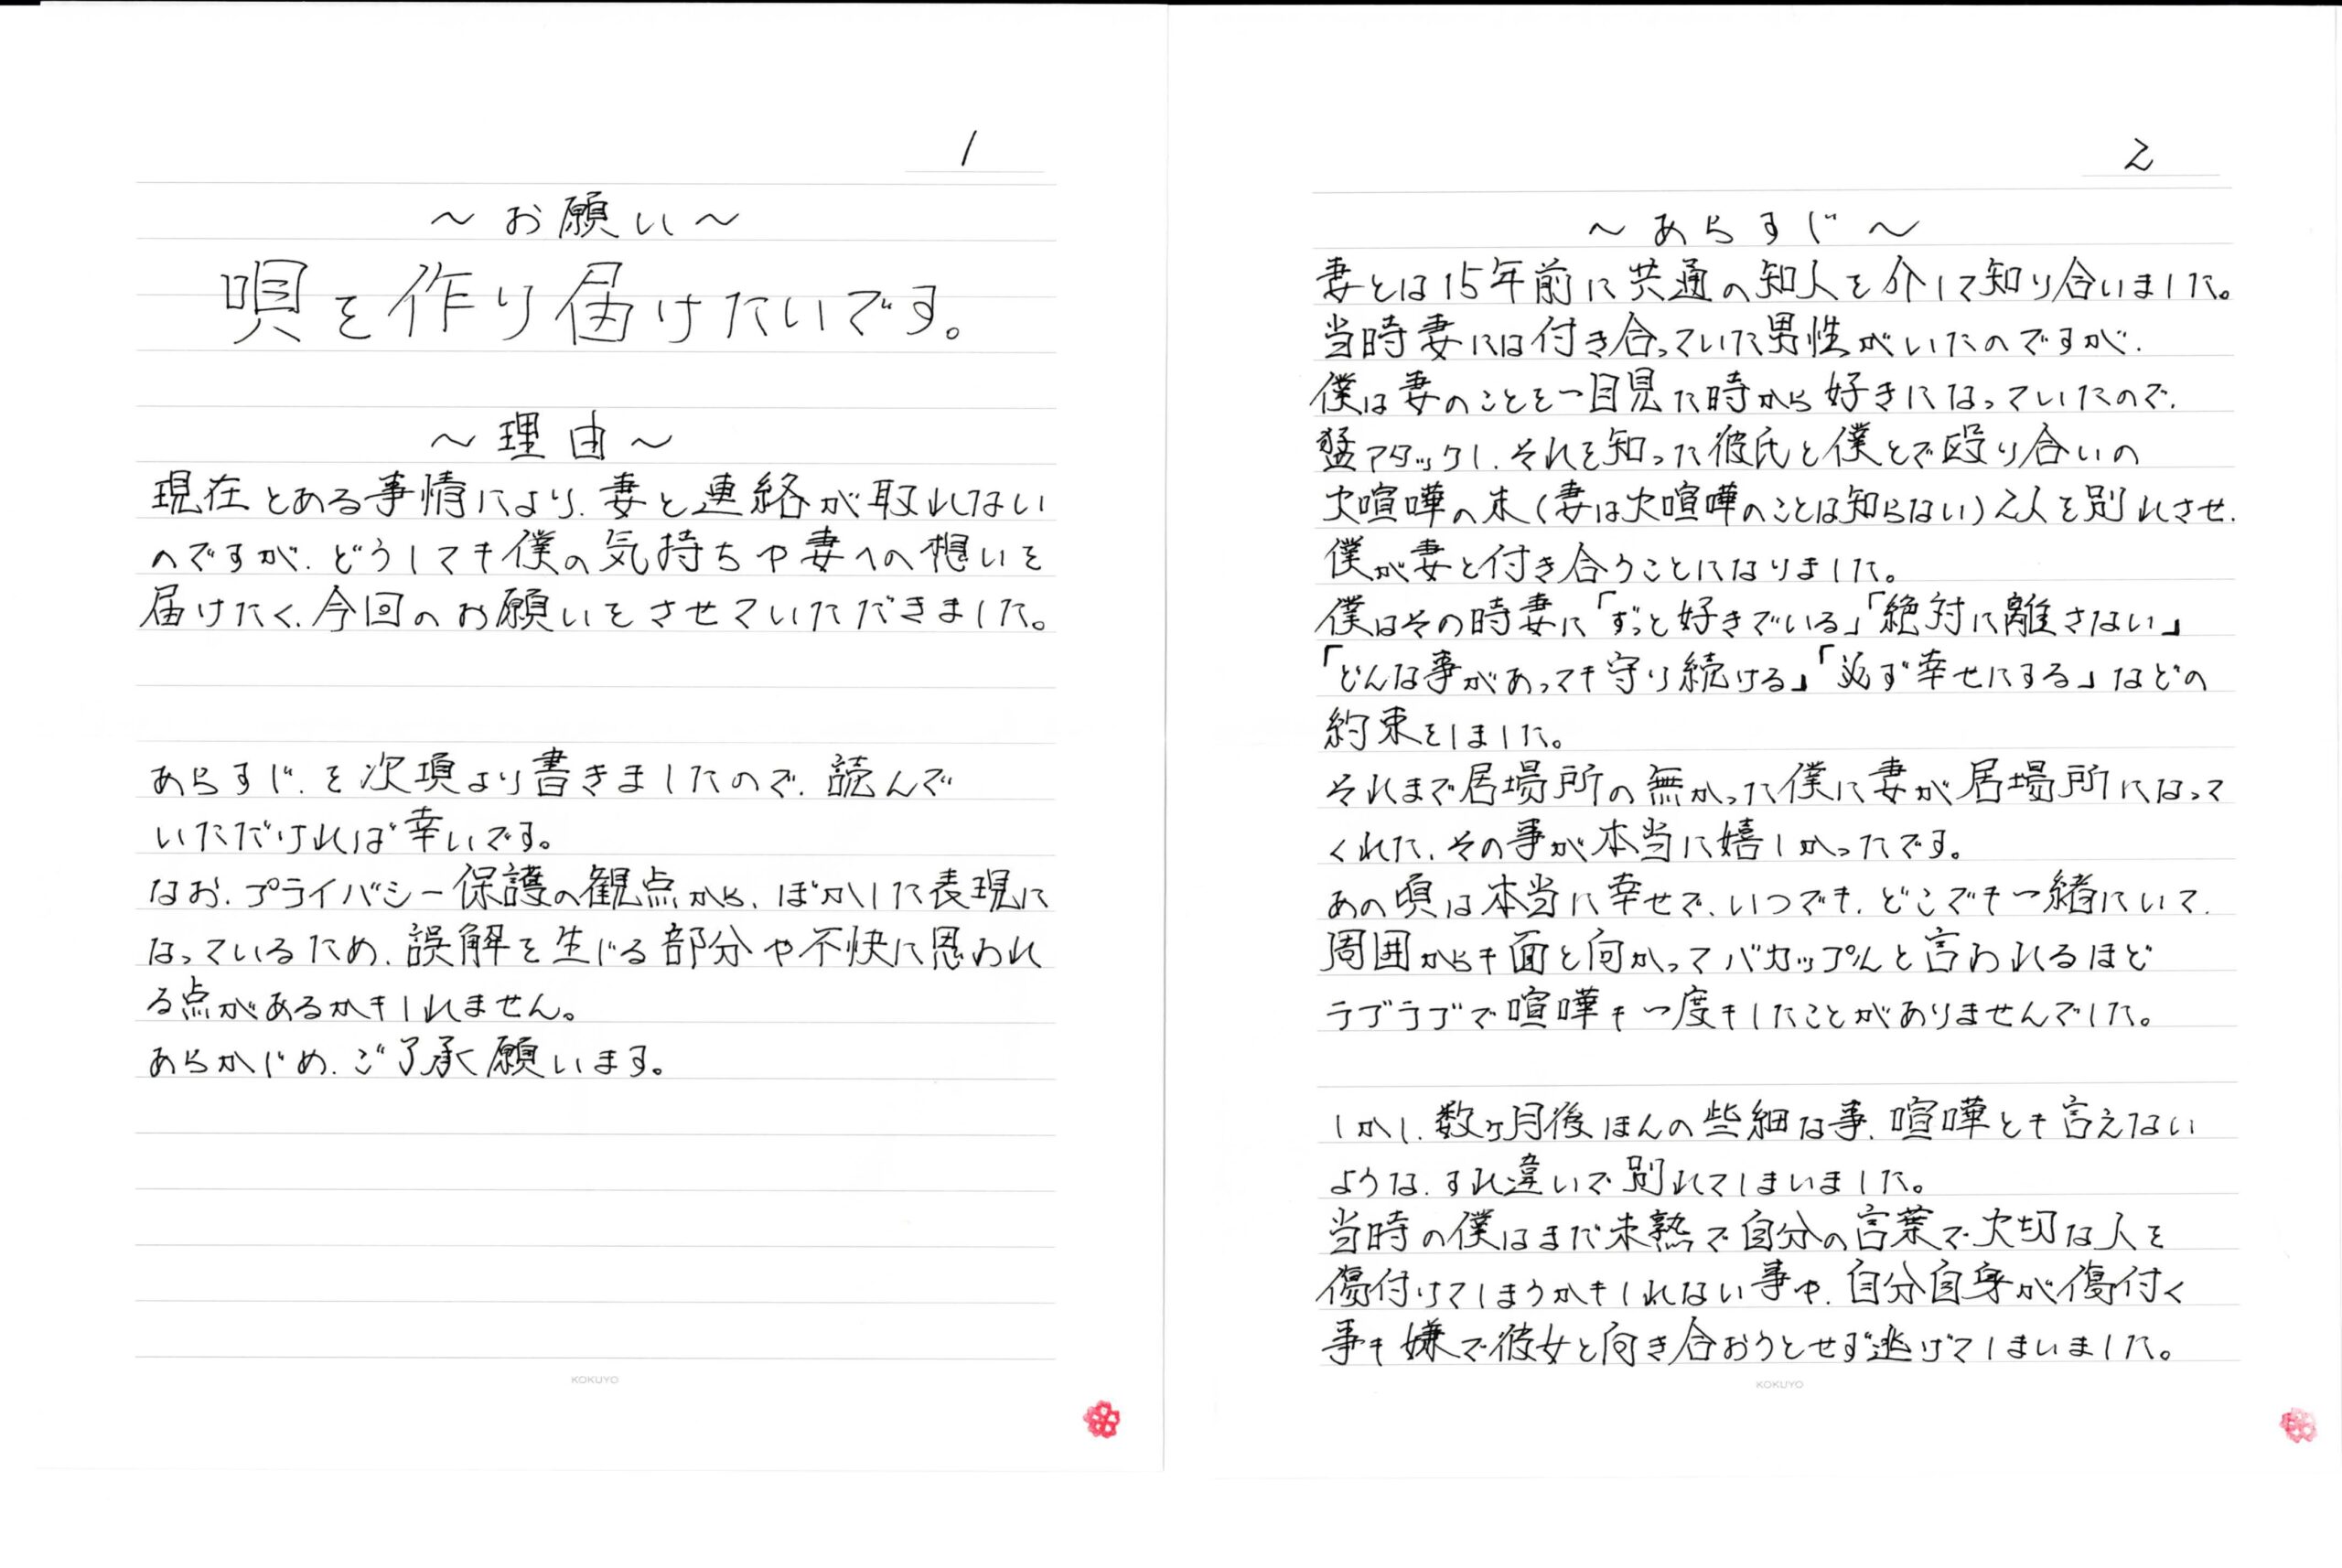 1
～お願い～
唄を作り届けたいです。
～理由～
現在とある事情により、妻と連絡が取れない
のですが、どうしても僕の気持ちや妻への想いを
届けたく、今回のお願いをさせていただきました。
あらすじ、を次項より書きましたので、読んで
いただければ幸いです。
なお、プライバシー保護の観点から、ぼかした表現に
なっているため、誤解を生じる部分や不快に思われ
る点があるかもしれません。
あらかじめ、ご了承願います。
KOKUYO
2
～あらすじ～
妻とは15年前に共通の知人を介して知り合いました。
当時妻には付き合っていた男性がいたのですが、
僕は妻のことを一目見た時から好きになっていたので、
猛アタックし、それを知った彼氏と僕とで殴り合いの
大喧嘩の末(妻は大喧嘩のことは知らない)2人を別れさせ、
僕が妻と付き合うことになりました。
僕はその時妻に「ずっと好きでいる」「絶対に離さない」
「どんな事があっても守り続ける」「必ず幸せにする」などの
約束をしました。
それまで居場所の無かった僕に妻が居場所になって
くれた、その事が本当に嬉しかったです。
あの頃は本当に幸せで、いつでも、どこでも一緒にいて、
周囲からも面と向かってバカップルと言われるほど
ラブラブで喧嘩も一度もしたことがありませんでした。
しかし、数ヶ月後ほんの些細な事、喧嘩とも言えない
ような、すれ違いで別れてしまいました。
当時の僕はまだ未熟で自分の言葉で大切な人を
傷付けてしまうかもしれない事や、自分自身が傷付く
事も嫌で彼女と向き合おうとせず逃げてしまいました。
KOKUYO